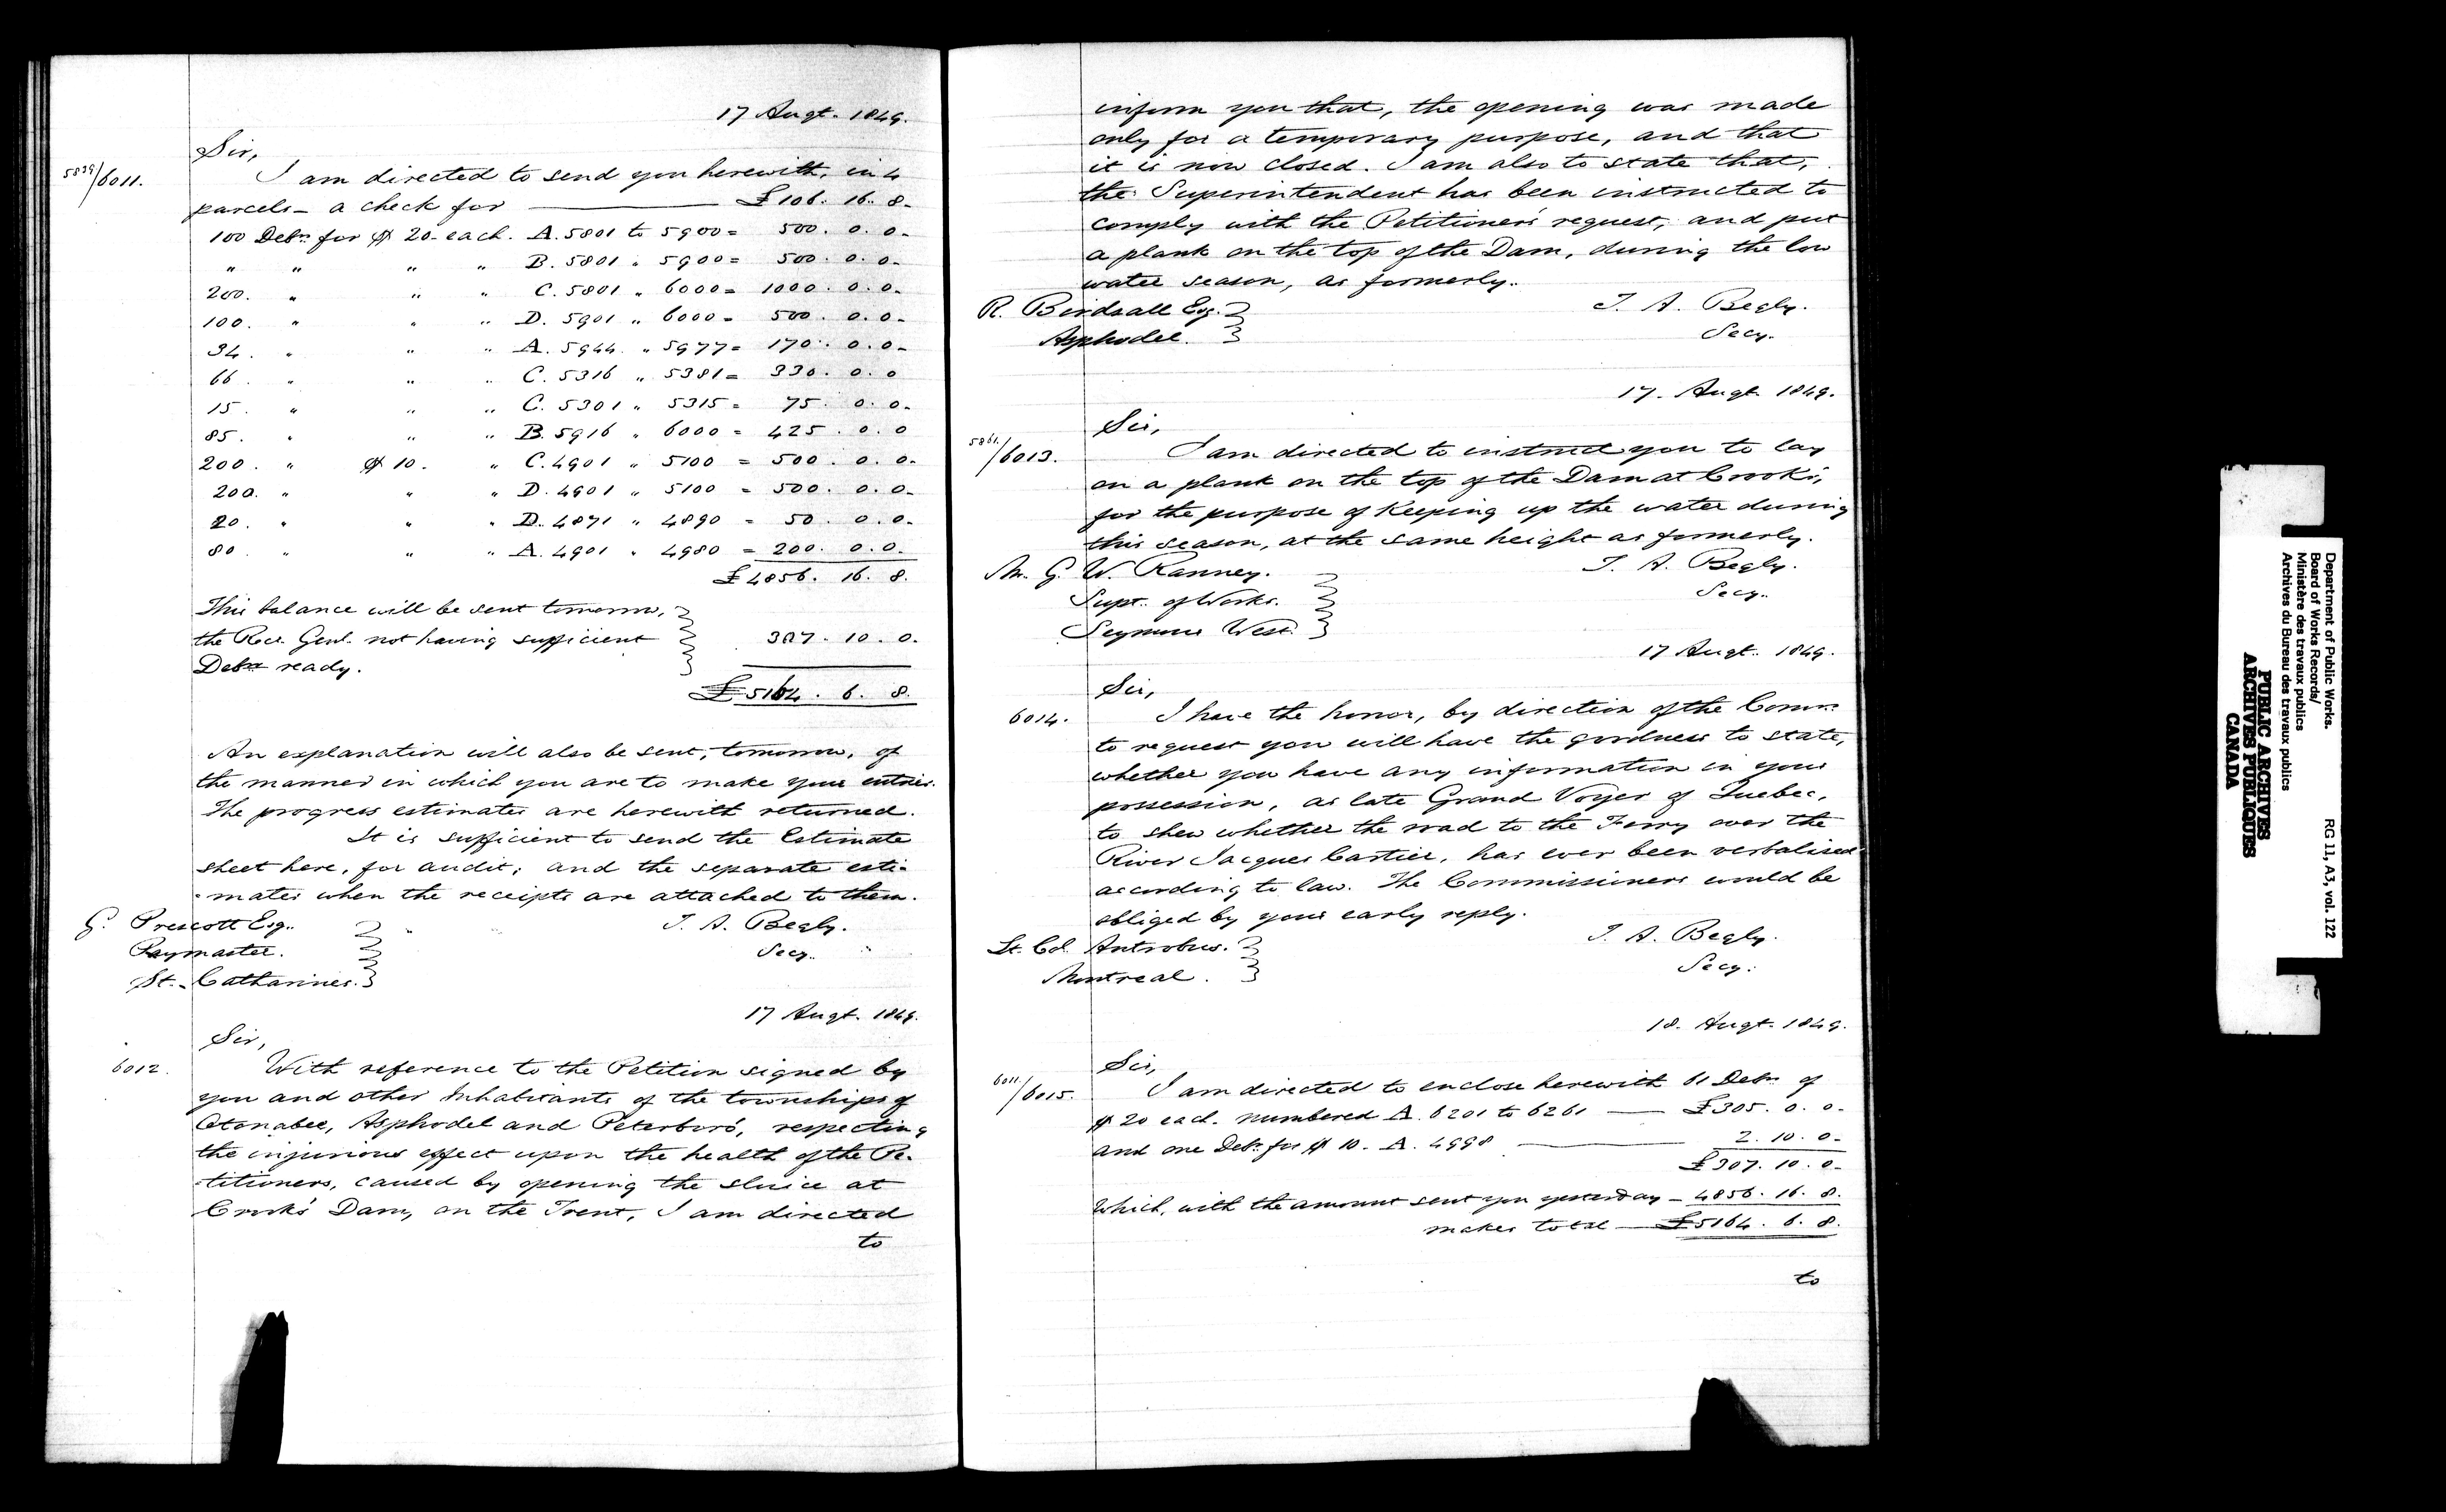 17 Augt. 1849.
Sir,
5839/6011. I am directed to send you herewith, in 4
parcels - a check for £106. 16. 8.
100 Debrs for $ 20 each. A. 5801 to 5900 = 500. 0. 0.
" " " " B. 5801 " 5900 = 500. 0. 0.
200. " " " C. 5801 " 6000 = 1000. 0. 0.
100. " " " D. 5901 " 6000 = 500. 0. 0.
34. " " " A. 5944 " 5977 = 170. 0. 0.
66. " " " C. 5316 " 5381 = 330. 0. 0
15. " " " C. 5301 " 5315 = 75. 0. 0.
85. " " " B. 5916 " 6000 = 425. 0. 0
200. " $ 10. " C. 4901 " 5100 = 500. 0. 0.
200. " " " D. 4901 " 5100 = 500. 0. 0.
20. " " " D. 4871 " 4890 = 50. 0. 0.
80. " " " A. 4901 " 4980 = 200. 0. 0.
£4856. 16. 8.
This balance will be sent tomorrow,
the Recr. Genl. not having sufficient 307. 10. 0.
Debrs ready.
£5164. 6. 8.
An explanation will also be sent, tomorrow, of
the manner in which you are to make your entries.
The progress estimates are herewith returned.
It is sufficient to send the Estimate
sheet here, for audit; and the separate esti-
-mates when the receipts are attached to them.
G. Prescott Esq. T. A. Begly.
Paymaster. Secy.
St. Catharines.
17 Augt. 1849.
Sir,
6012. With reference to the Petition signed by
you and other Inhabitants of the townships of
Otonabee, Asphodel and Peterboro', respecting
the injurious effect upon the health of the Pe-
-titioners, caused by opening the sluice at
Crooks' Dam, on the Trent, I am directed
to
inform you that, the opening was made
only for a temporary purpose, and that
it is now closed. I am also to state that,
the Superintendent has been instructed to
comply with the Petitioners' request, and put
a plank on the top of the Dam, during the low
water season, as formerly.
R. Birdsall Esq. T. A. Begly.
Asphodel. Secy.
17. Augt. 1849.
Sir,
5861./6013. I am directed to instruct you to lay
on a plank on the top of the Dam at Crooks',
for the purpose of Keeping up the water during
this season, at the same height as formerly.
Mr. G. W. Ranney. T. A. Begly.
Supt. of Works. Secy.
Seymour West.
17 Augt. 1849.
Sir,
6014. I have the honor, by direction of the Commrs
to request you will have the goodness to state,
whether you have any information in your
possession, as late Grand Voyer of Quebec,
to shew whether the road to the Ferry over the
River Jacques Cartier, has ever been verbalised
according to law. The Commissioners would be
obliged by your early reply.
Lt. Col. Antrobus. T. A. Begly.
Montreal. Secy.
18. Augt. 1849.
Sir,
6011./6015. I am directed to enclose herewith 61 Debrs of
$ 20 each. numbered A. 6201 to 6261 £305. 0. 0.
and one Debr. for $ 10. A. 4998 2. 10. 0.
£307. 10. 0.
Which, with the amount sent you yesterday - 4856. 16. 8.
makes total £5164. 6. 8.
to
Department of Public Works.
Board of Works Records/
Ministère des travaux publics
Archives du Bureau des travaux publics
RG 11, A3, vol. 122
PUBLIC ARCHIVES
ARCHIVES PUBLIQUES
CANADA